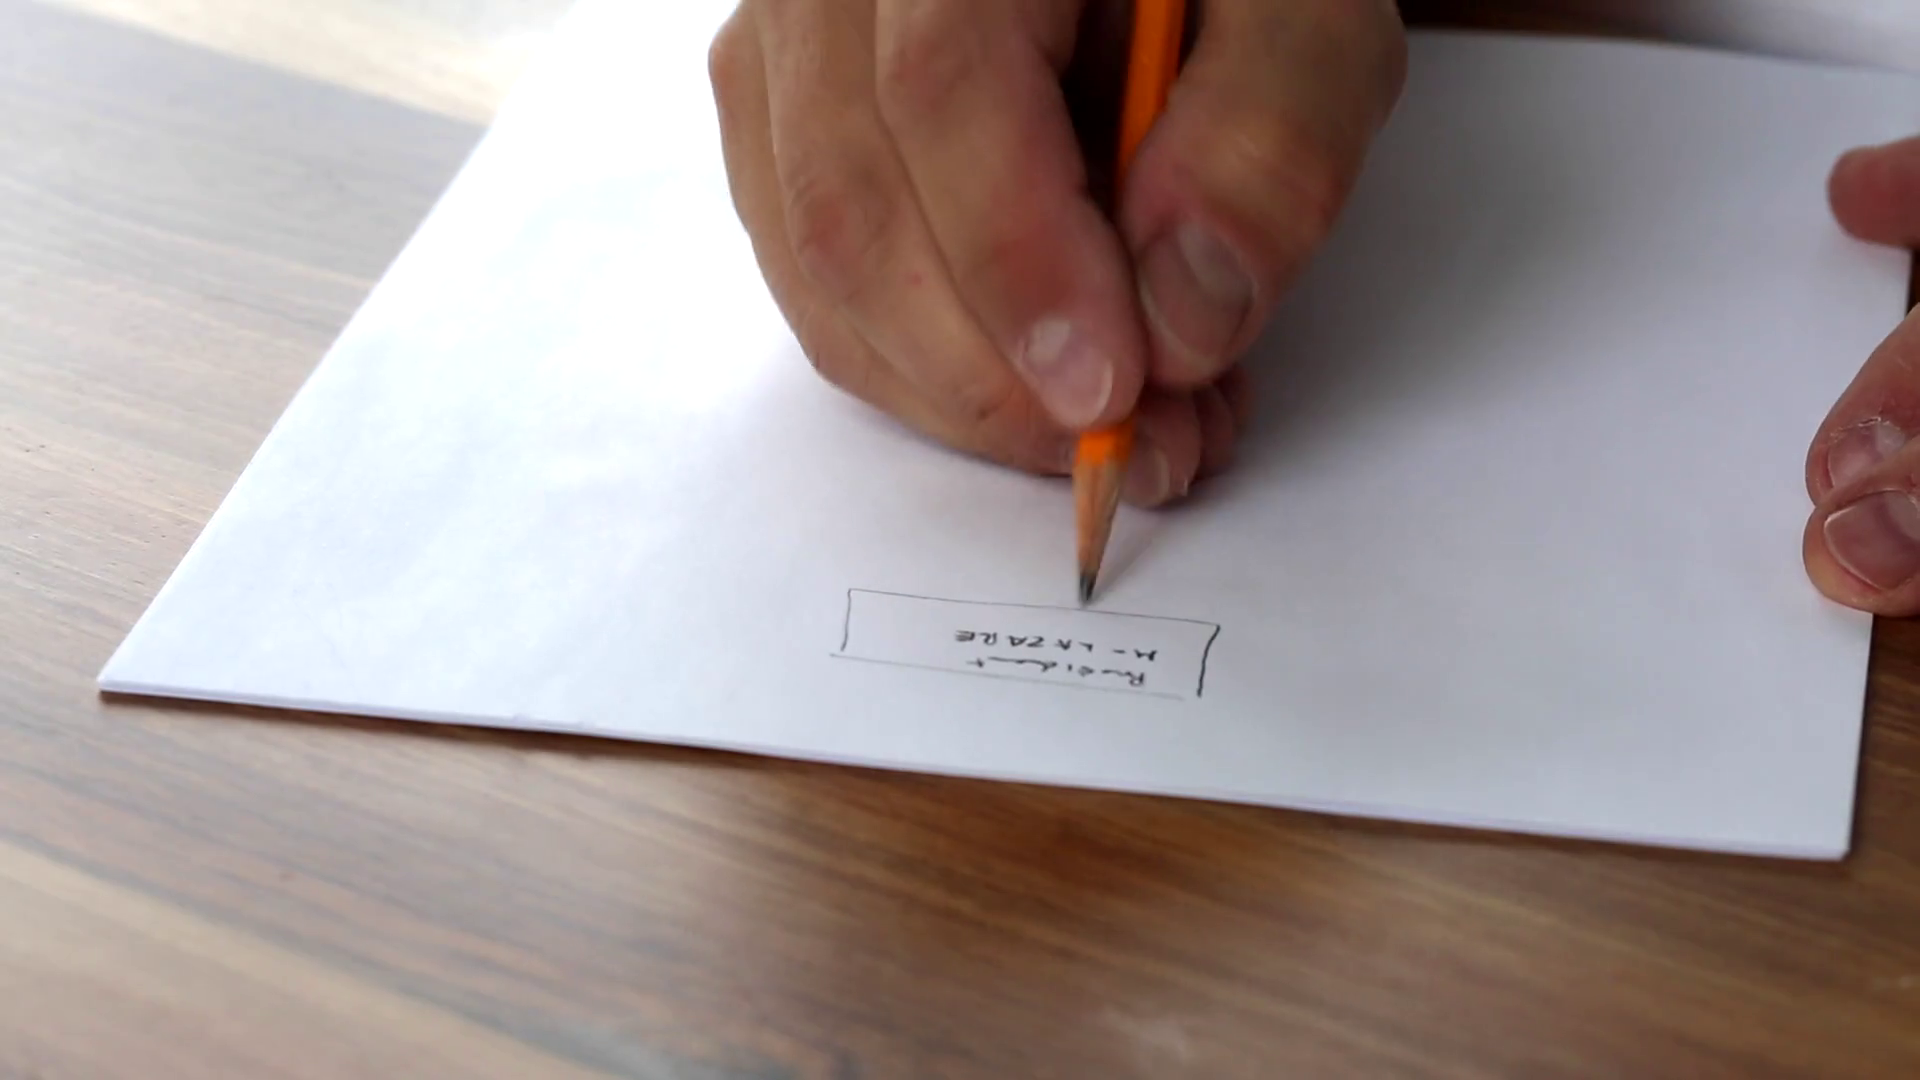 President
M. LAZARE